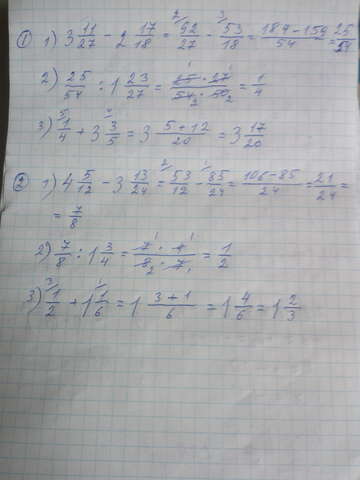 ① 1) 3 11/27 - 2 17/18 = 92/27 - 53/18 = (184 - 159)/54 = 25/54
2) 25/54 : 1 23/27 = (25 · 27)/(54 · 50) = 1/4
3) 1/4 + 3 3/5 = 3 (5 + 12)/20 = 3 17/20
② 1) 4 5/12 - 3 13/24 = 53/12 - 85/24 = (106 - 85)/24 = 21/24 =
= 7/8
2) 7/8 : 1 3/4 = (7 · 4)/(8 · 7) = 1/2
3) 1/2 + 1 1/6 = 1 (3 + 1)/6 = 1 4/6 = 1 2/3